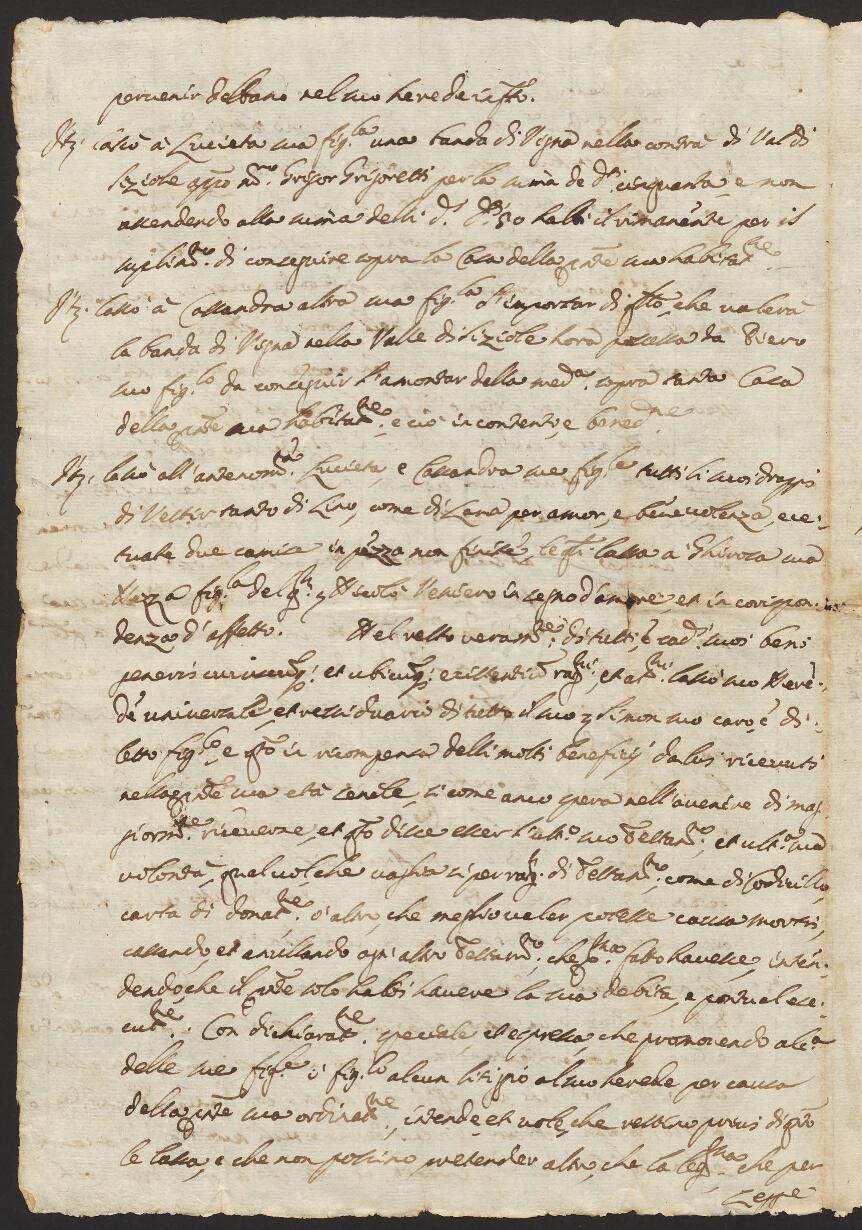 pervenir debbano nel suo herede inſto.
Itẓ. lascio à Lucieta sua fig.la una banda di Vigna nella contrà di Val di
siziole app.o Grigor Grigoretti per la suma de d.ti cinquanta, e non
assendendo alla suma delli d.ti d.ti 50 habbi il rimanente per il
suplim.to di conseguire sopra la Casa della pñte sua habitat.ne
Itẓ. lasciò à Cassandra altra sua fig.la l'importar di qto, che valerà
la banda di Vigna nella Valle di siziole hora possessa da Piero
suo fig.lo da conseguir l'amontar della med.a sopra tanta Casa
della pñte sua habitat.ne, e ciò in contento, e bened.ne
Itẓ. lasciò all'antenom.te Lucieta e Cassandra sue fig.le tutti li suoi drappi
di Vestir tanto di Lino, come di Lana per amor, e benevolenza, ece:
tuate due camise in pezza non finite, le qli lassa a sua
Nezza fig.la del Nicolò Veniero in segno d'amore, et in corrispon:
denza d'affetto. Nel resto veram.te di tutti, e cad.i suoi beni
generis cuiuscunq; et ubicunq; existenti, rag.ni, et att.ni lasciò suo Here:
de universale, et residuario di tutto il suo Simon suo caro, e di:
letto fig.lo, e qto in ricompensa delli molti beneficij da lui ricevuti
nella pñte sua età senile, si come anco spera nell'avenire di mag:
giorm.te riceverne, et qto disse esser l'ult.o suo Testam.to, et ult.a sua
volontà, qual vol, che vaglia si per rag. di Testam.to, come di Codicillo,
carta di donat.ne, ò altro, che meglio valer potesse causa mortis,
cassando, et anullando ogn'altro Testam.to, che p.ma fatto havesse, inten:
dendo, che il pñte solo habbi havere la sua debita, e pontual ese:
cut.ne. Con dichiarat.ne speciale, et espressa, che promovendo alc.a
delle sue fig.le ò fig.lo alcun litigio al suo herede per causa
della pñte sua ordinat.ne, intende, et vole, che restino privi di qto
le lassa, e che non possino pretender altro, che la leg.ma che per
Legge